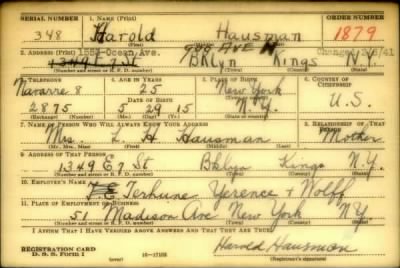 SERIAL NUMBER 1. NAME (Print) ORDER NUMBER
348 Harold Hausman 1879
(First) (Middle) (Last)
2. ADDRESS (Print) 1552 Ocean Ave. 999 AVE H Changed 2/8/41
1349 E 7 St BKlyn Kings N.Y.
(Number and street or R. F. D. number) (Town) (County) (State)
3. TELEPHONE 4. AGE IN YEARS 5. PLACE OF BIRTH 6. COUNTRY OF CITIZENSHIP
Navarre 8 25 New York
(Town or county)
DATE OF BIRTH U.S.
2875 5 29 15 N.Y.
(Exchange) (Number) (Mo.) (Day) (Yr.) (State or country)
7. NAME OF PERSON WHO WILL ALWAYS KNOW YOUR ADDRESS 8. RELATIONSHIP OF THAT PERSON
Mrs. L H Hausman Mother
(Mr., Mrs., Miss) (First) (Middle) (Last)
9. ADDRESS OF THAT PERSON
1349 E 7 St Bklyn Kings N.Y.
(Number and street or R. F. D. number) (Town) (County) (State)
10. EMPLOYER'S NAME
F.E. Terhune Yerence + Wolff
11. PLACE OF EMPLOYMENT OR BUSINESS
51 Madison Ave New York NY.
(Number and street or R. F. D. number) (Town) (County) (State)
I AFFIRM THAT I HAVE VERIFIED ABOVE ANSWERS AND THAT THEY ARE TRUE.
REGISTRATION CARD Harold Hausman
D. S. S. Form 1 16—17105 (Registrant's signature)